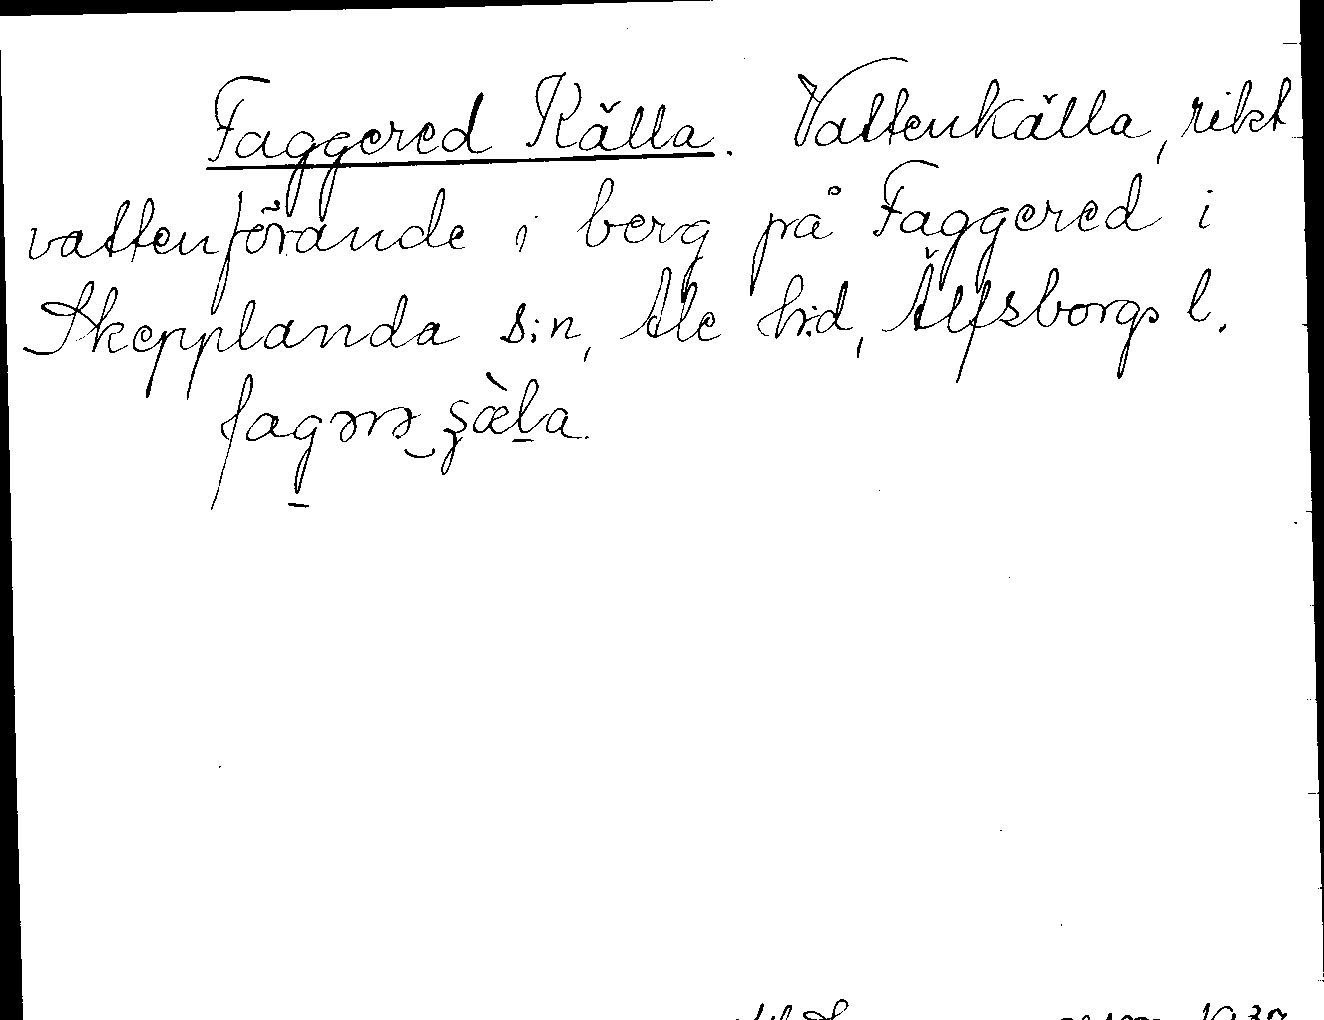 Faggered Källa. Vattenkälla, rikt
vattenförande i berg på Faggered i
Skepplanda s:n, Ale h:d, Älfsborgs l.